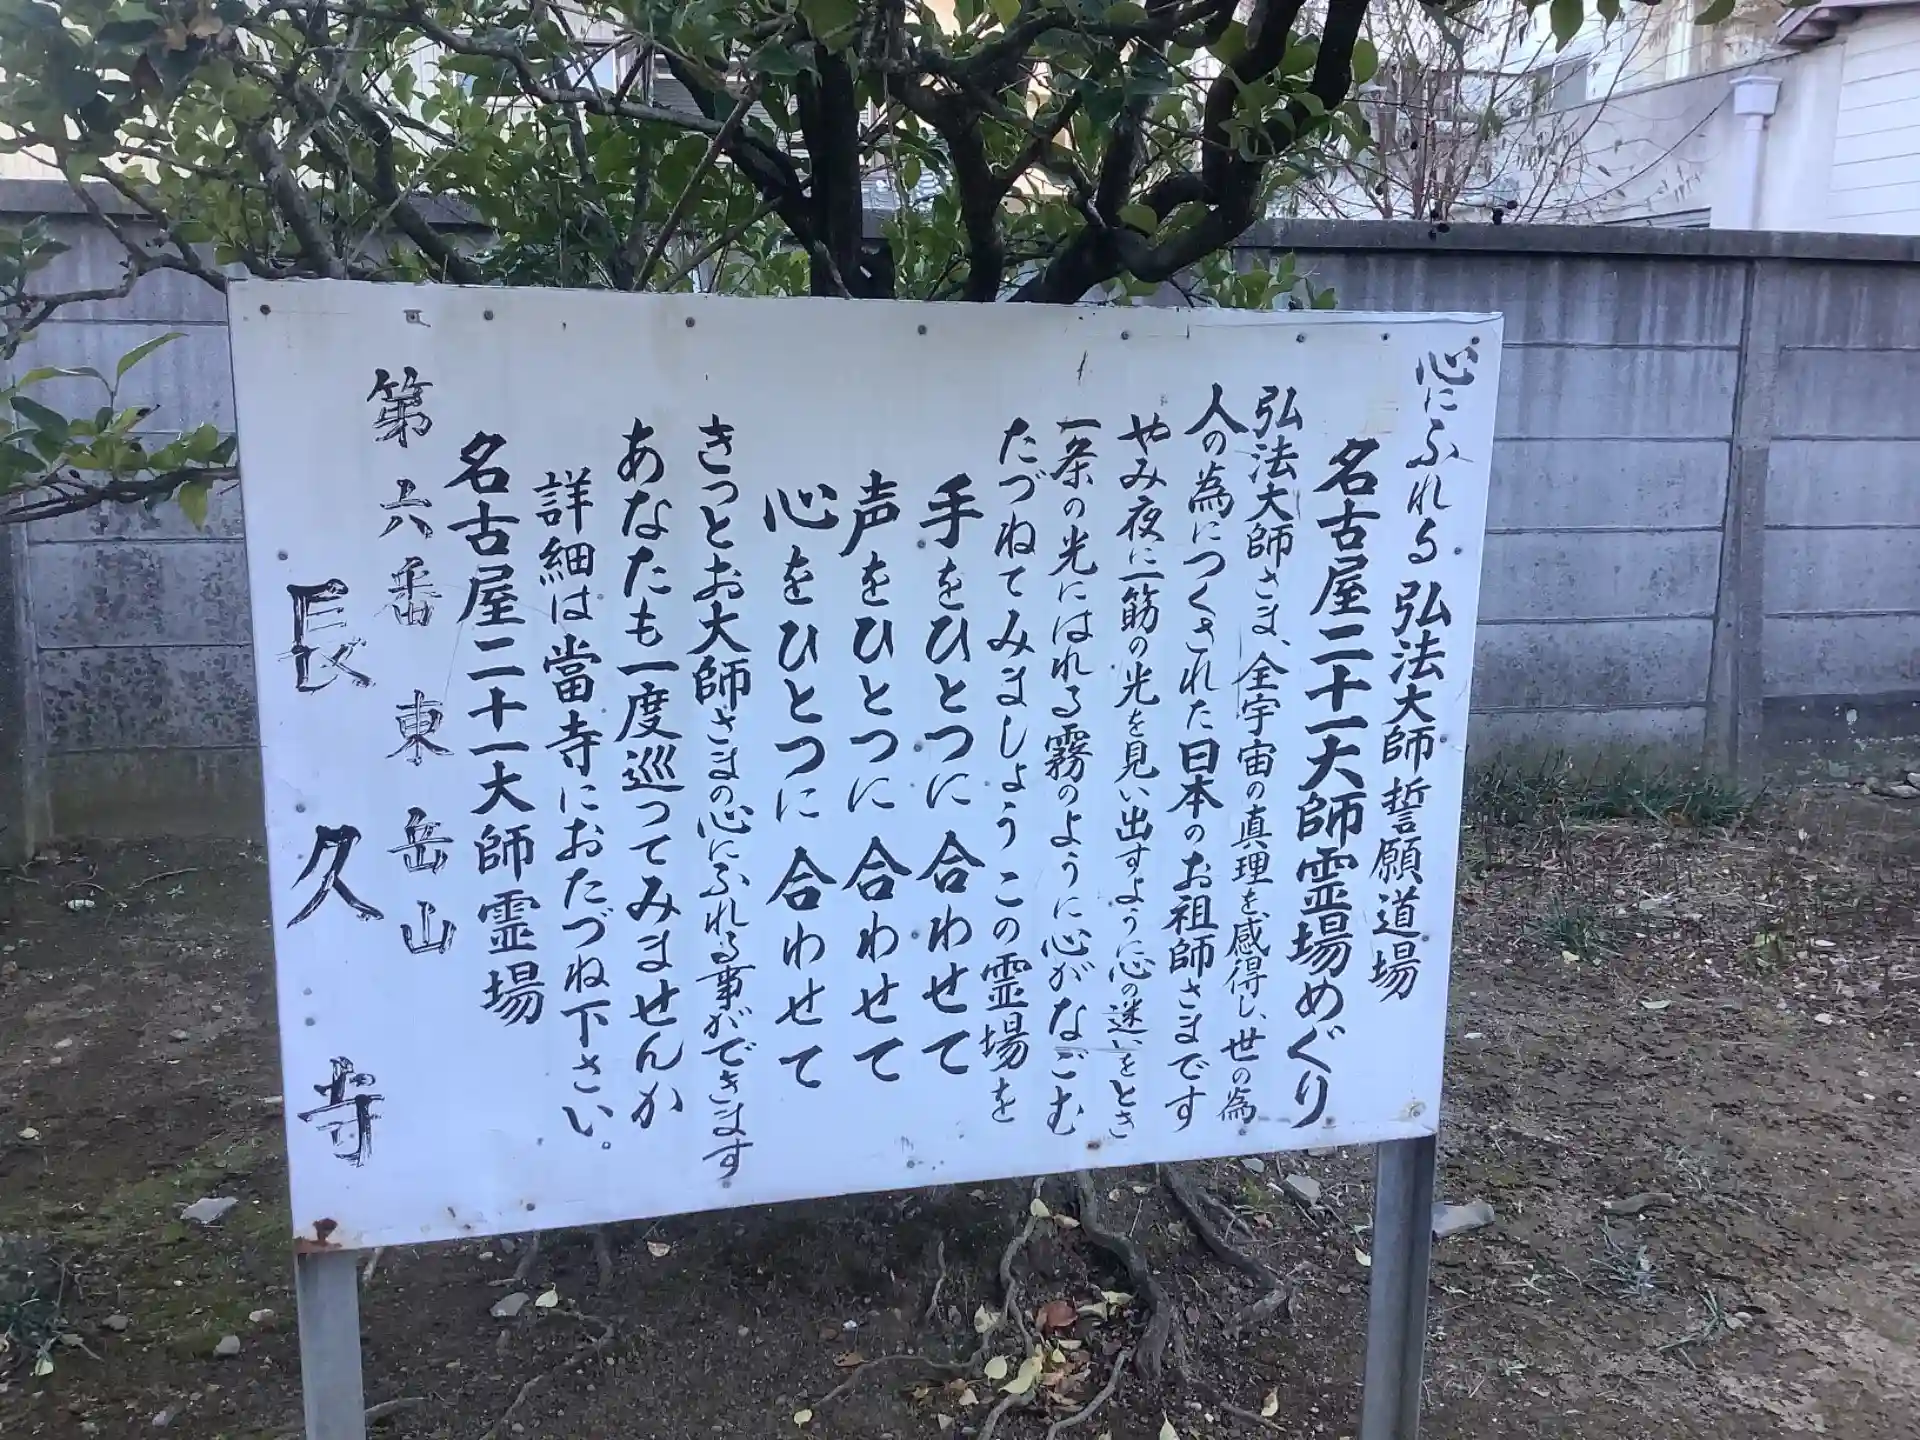 心にふれる 弘法大師 誓願道場
名古屋二十一大師霊場めぐり
弘法大師さま、全宇宙の真理を感得し、世の為
人の為につくされた日本のお祖師さまです
やみ夜に一筋の光を見い出すように心の迷いをとき
一条の光にはれる霧のように心がなごむ
たづねてみましょうこの霊場を
手をひとつに合わせて
声をひとつに合わせて
心をひとつに合わせて
きっとお大師さまの心にふれる事ができます
あなたも一度巡ってみませんか
詳細は當寺におたづね下さい。
名古屋二十一大師霊場
第六番 東岳山
長久寺